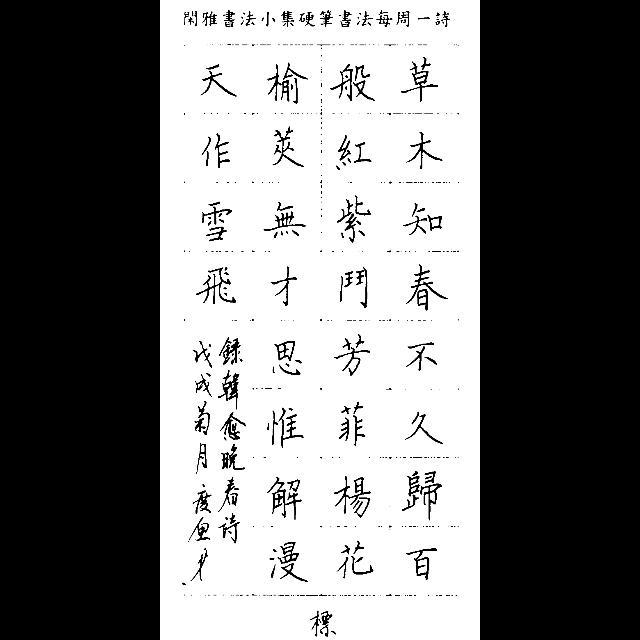 閑雅書法小集硬筆書法每周一詩
草木知春不久歸百
般紅紫鬥芳菲楊花
榆莢無才思惟解漫
天作雪飛
錄韓愈晚春詩
戊戌菊月
標